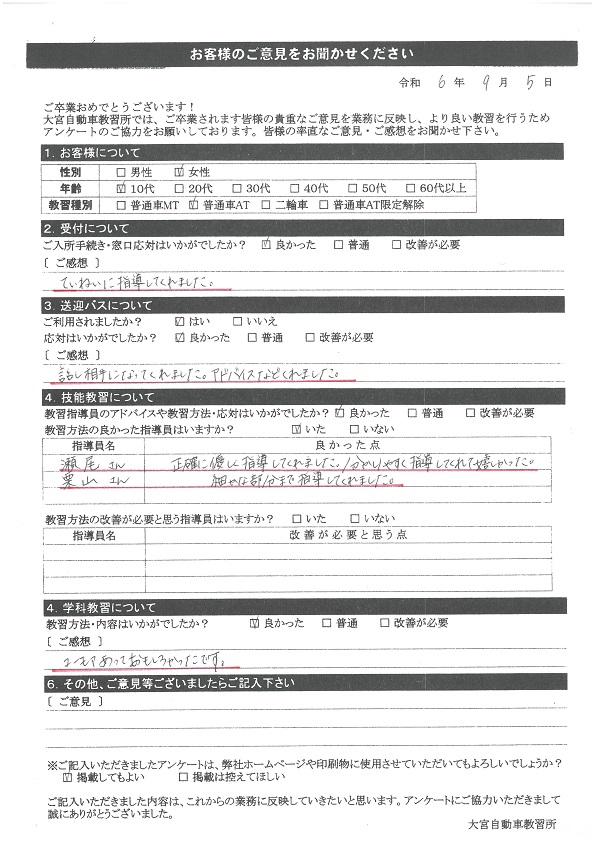 お客様のご意見をお聞かせください
令和 6 年 9 月 5 日
ご卒業おめでとうございます！
大宮自動車教習所では、ご卒業されます皆様の貴重なご意見を業務に反映し、より良い教習を行うため
アンケートのご協力をお願いしております。皆様の率直なご意見・ご感想をお聞かせ下さい。
1. お客様について
性別 □ 男性 ☑ 女性
年齢 ☑ 10代 □ 20代 □ 30代 □ 40代 □ 50代 □ 60代以上
教習種別 □ 普通車MT ☑ 普通車AT □ 二輪車 □ 普通車AT限定解除
2. 受付について
ご入所手続き・窓口応対はいかがでしたか？ ☑ 良かった □ 普通 □ 改善が必要
〔 ご感想 〕
ていねいに指導してくれました。
3. 送迎バスについて
ご利用されましたか？ ☑ はい □ いいえ
応対はいかがでしたか？ ☑ 良かった □ 普通 □ 改善が必要
〔 ご感想 〕
話し相手になってくれました。アドバイスなどくれました。
4. 技能教習について
教習指導員のアドバイスや教習方法・応対はいかがでしたか？ ☑ 良かった □ 普通 □ 改善が必要
教習方法の良かった指導員はいますか？ ☑ いた □ いない
指導員名 良かった点
瀬尾さん 正確に優しく指導してくれました。分かりやすく指導してくれて嬉しかった。
栗山さん 細かな部分まで指導してくれました。
教習方法の改善が必要と思う指導員はいますか？ □ いた □ いない
指導員名 改善が必要と思う点
4. 学科教習について
教習方法・内容はいかがでしたか？ ☑ 良かった □ 普通 □ 改善が必要
〔 ご感想 〕
あっておもしろかったです。
6. その他、ご意見等ございましたらご記入下さい
〔 ご意見 〕
※ご記入いただきましたアンケートは、弊社ホームページや印刷物に使用させていただいてもよろしいでしょうか？
☑ 掲載してもよい □ 掲載は控えてほしい
ご記入いただきました内容は、これからの業務に反映していきたいと思います。アンケートにご協力いただきまして
誠にありがとうございました。
大宮自動車教習所